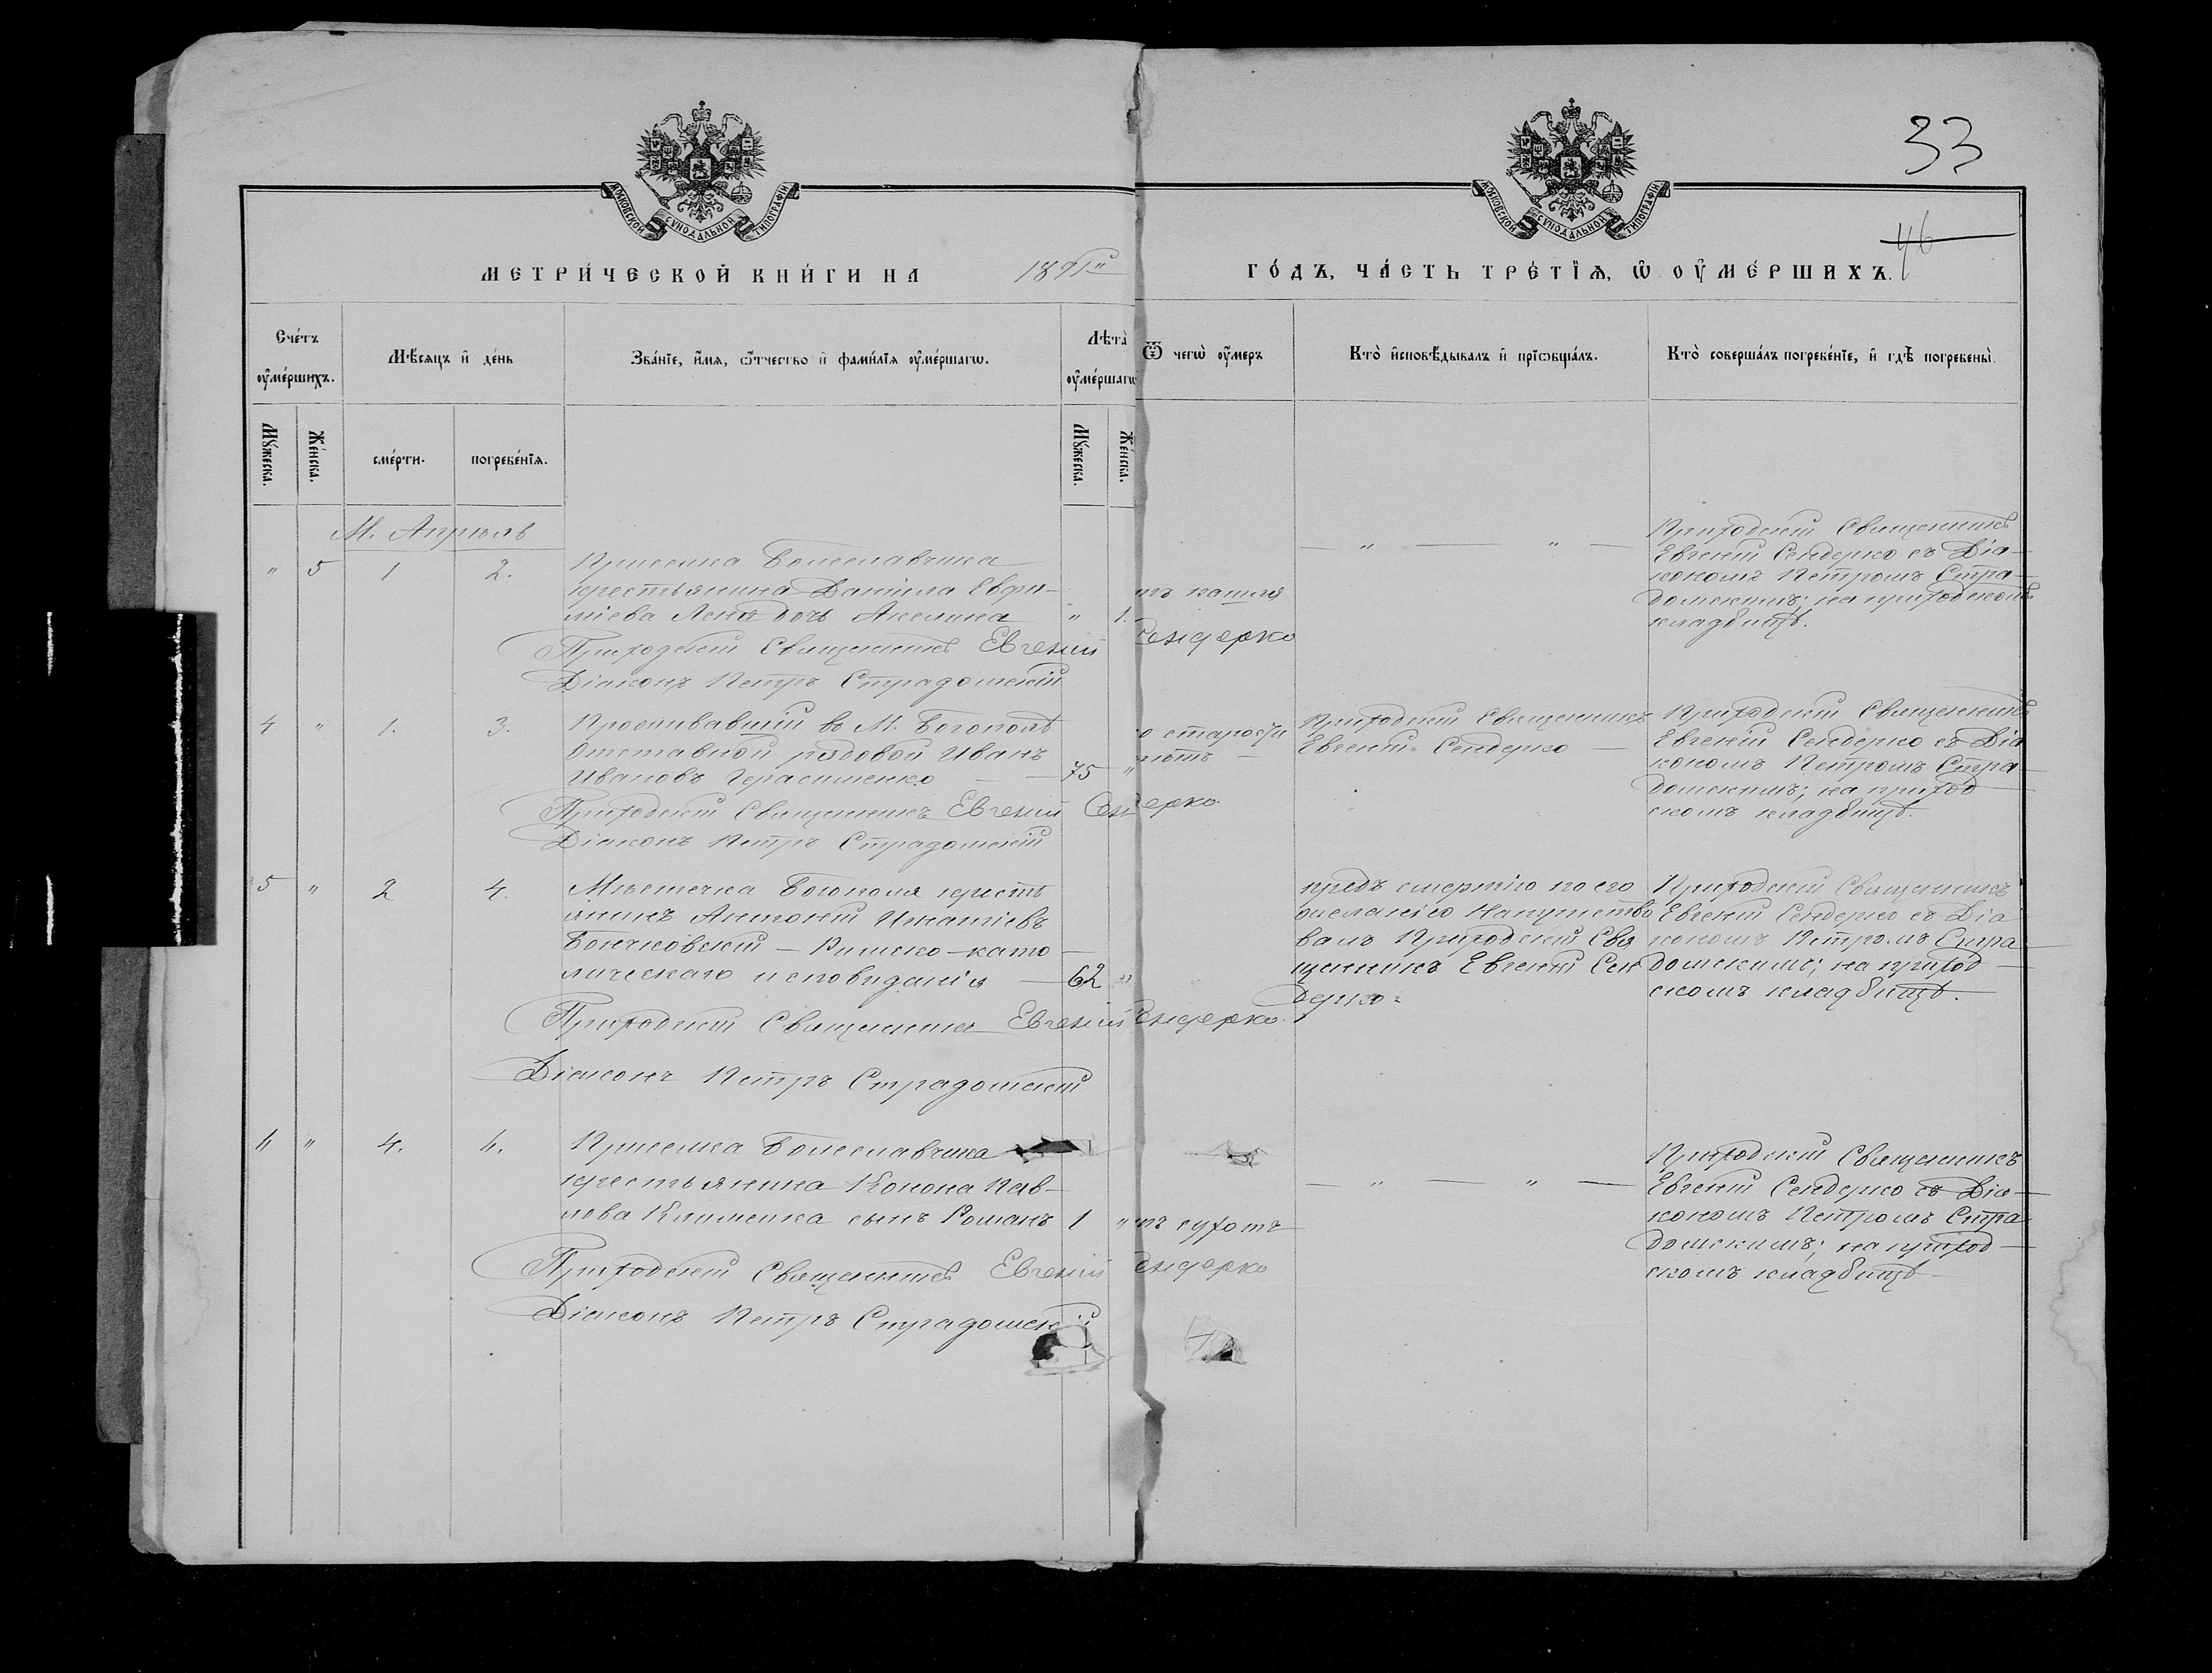 33
46
МОСКОВСКОЙ СѴНОДАЛЬНОЙ ТИПОГРАФІИ
МОСКОВСКОЙ СѴНОДАЛЬНОЙ ТИПОГРАФІИ
МЕТРИ́ЧЕСКОЙ КНИ́ГИ НА 1891й ГО́ДЪ, ЧА́СТЬ ТРЕ́ТЇѦ, Ѡ҆ ОУ҆МЕ́РШИХЪ.
Сче́тъ оу҆ме́ршихъ.
Мѣ́сяцъ и҆ де́нь
Зва́нїе, и҆́мѧ, ѻ҆́тчество и҆ фами́лїѧ оу҆ме́ршагѡ.
Лѣ́та оу҆ме́ршагѡ
Ѿ чегѡ̀ оу҆́меръ
Кто̀ и҆сповѣ́дывалъ и҆ прїѡбща́лъ.
Кто̀ соверша́лъ погребе́нїе, и҆ гдѣ̀ погребены̀.
Мꙋ́жеска.
Же́нска.
сме́рти.
погребе́нїѧ.
Мꙋ́жеска.
Же́нска.
М. Апрѣль
" 5 1 2.
Приселка Болеславчика
крестьянина Даніила Евфи-
міева дочь Акелина " 1.
Приходскій Священникъ Евгеній Сендерко
Діаконъ Петръ Страдомскій
отъ кашля
— " — " —
Приходскій Священникъ
Евгеній Сендерко съ Діа-
кономъ Петромъ Стра-
домскимъ; на приходскомъ
кладбищѣ.
4 " 1. 3.
Проживавшій въ М. Богополѣ
Отставной рядовой Иванъ
Ивановъ Герасименко — 75 "
Приходскій Священникъ Евгеній Сендерко
Діаконъ Петръ Страдомскій
о старости
лѣтъ —
Приходскій Священникъ
Евгеній Сендерко —
Приходскій Священникъ
Евгеній Сендерко съ Діа
кономъ Петромъ Стра-
домскимъ; на приход-
скомъ кладбищѣ.
5 " 2 4.
Мѣстечка Богополя кресть
янинъ Антоній Игнатіевъ
Бончковскій — Римско-като
лическаго исповиданія — 62 "
Приходскій Священникъ Евгеній Сендерко.
Діаконъ Петръ Страдомскій
предъ смертію по его
желанію напутство
валъ Приходскій Свя
щенникъ Евгеній Сен
дерко.
Приходскій Священникъ
Евгеній Сендерко съ Діа
кономъ Петромъ Стра
домскимъ; на приход-
скомъ кладбищѣ.
" 4.
Приселка Болеславчика
крестьянина Конона Пав-
лова Клименка сынъ Романъ 1 "
Приходскій Священникъ Евгеній Сендерко
Діаконъ Петръ Страдомскій
отъ сухотъ
— " — " —
Приходскій Священникъ
Евгеній Сендерко съ Діа-
кономъ Петромъ Стра
домскимъ; на приход-
скомъ кладбищѣ